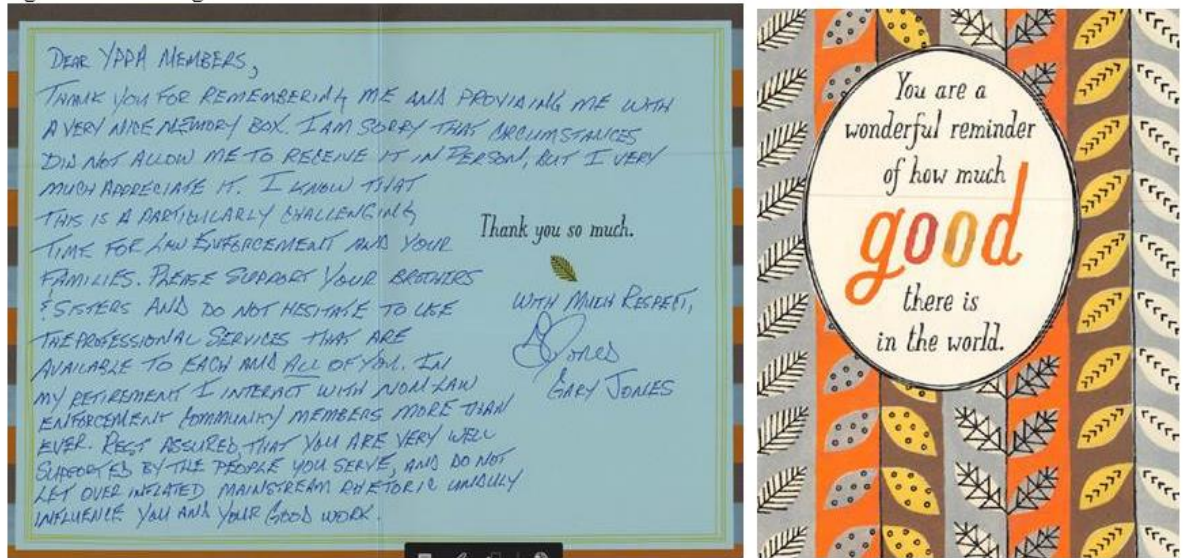 DEAR YPPA MEMBERS,
THANK YOU FOR REMEMBERING ME AND PROVIDING ME WITH
A VERY NICE MEMORY BOX. I AM SORRY THAT CIRCUMSTANCES
DID NOT ALLOW ME TO RECEIVE IT IN PERSON, BUT I VERY
MUCH APPRECIATE IT. I KNOW THAT
THIS IS A PARTICULARLY CHALLENGING
TIME FOR LAW ENFORCEMENT AND YOUR
FAMILIES. PLEASE SUPPORT YOUR BROTHERS
& SISTERS AND DO NOT HESITATE TO USE
THE PROFESSIONAL SERVICES THAT ARE
AVAILABLE TO EACH AND ALL OF YOU. IN
MY RETIREMENT I INTERACT WITH NON LAW
ENFORCEMENT COMMUNITY MEMBERS MORE THAN
EVER. REST ASSURED, THAT YOU ARE VERY WELL
SUPPORTED BY THE PEOPLE YOU SERVE, AND DO NOT
LET OVER INFLATED MAINSTREAM RHETORIC UNDULY
INFLUENCE YOU AND YOUR GOOD WORK.
Thank you so much.
WITH MUCH RESPECT,
GJones
GARY JONES
You are a
wonderful reminder
of how much
good
there is
in the world.